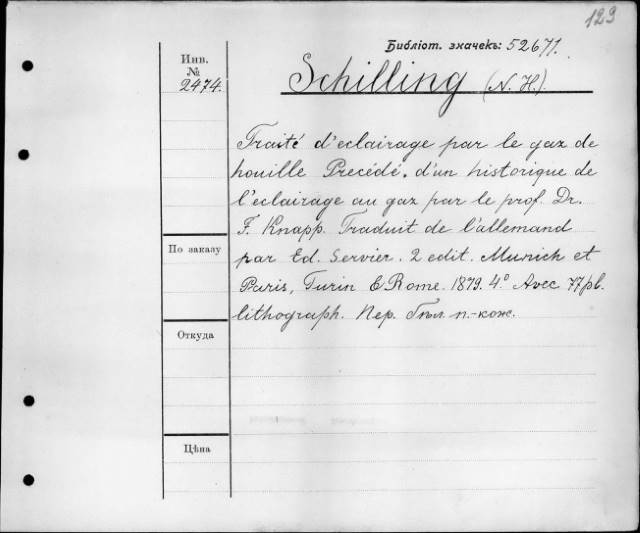 123
Библіот. значекъ: 52671.
Инв.
№
2474.
Schilling (N. H.)
Traité d'eclairage par le gaz de
houille Precédé. d'un historique de
l'eclairage au gaz par le prof. Dr.
F. Knapp. Traduit de l'allemand
По заказу
par Ed. Servier. 2 edit. Munich et
Paris, Turin & Rome. 1879. 4º Avec 77 pl.
lithograph. Пер.
Откуда
Цѣна